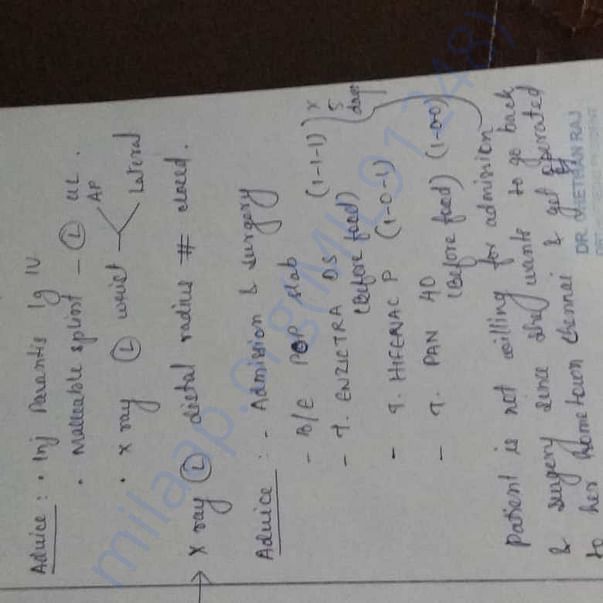 Advice : • Inj Paracetis 1g IV
• Malleable splint - Ⓛ UL.
• X ray Ⓛ wrist
AP
Lateral
→ X ray Ⓛ distal radius # closed.
Advice : - Admission & surgery
- B/E POP slab
- T. ENZICTRA DS (1-1-1)
(Before food)
x 5 days
- T. HIFENAC P (1-0-1)
- T. PAN 40 (1-0-0)
(Before food)
Patient is not willing for admission
& surgery since she wants to go back
to her hometown Chennai & get operated
DR. CHETHAN RAJ
milaap.org(MIL91248)